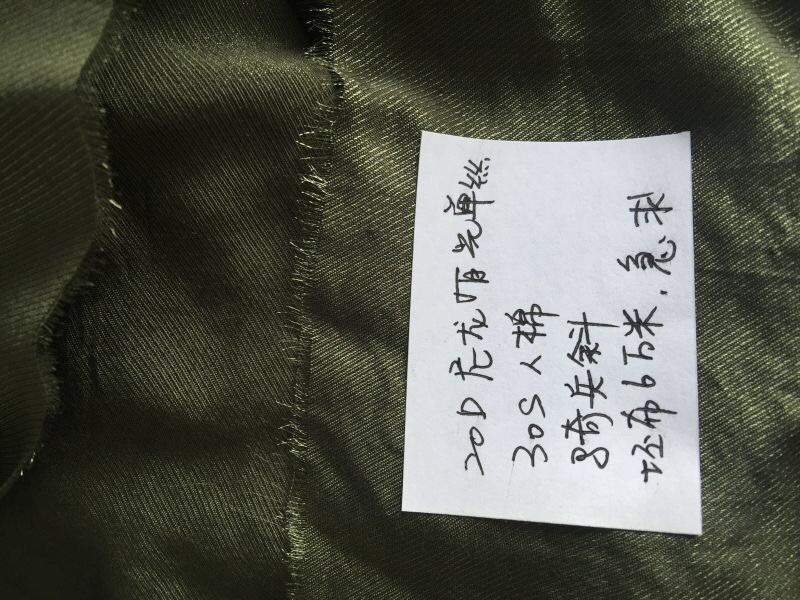 20D尼龙有光单丝
30S人棉
8奇兵斜
坯布6万米.急求